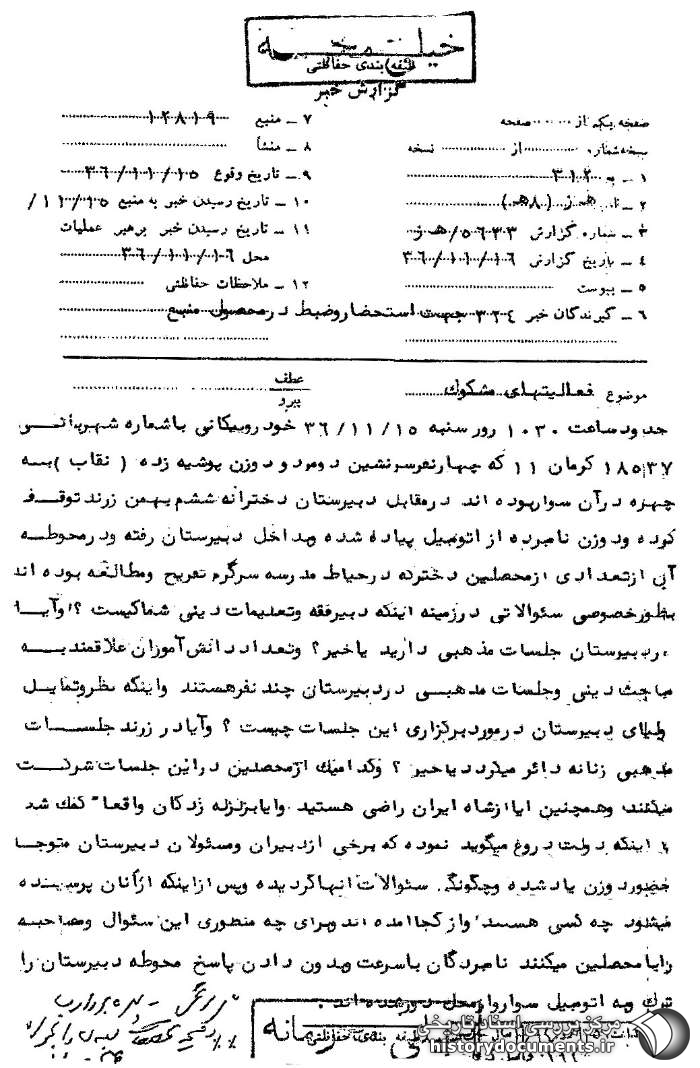 خیلی محرمانه
طبقه بندی حفاظتی
گزارش خبر
صفحه یک از ........ صفحه
نسخه شماره ........ از ........ نسخه
۱ – به ۳۱۲
۲ – از (۸هـ)
۳ – شماره گزارش ۵۶۳۳/هـ
۴ – تاریخ گزارش ۳۶/۱۱/۱۶
۵ – پیوست
۶ – گیرندگان خبر ۳۲۴ جهت استحضار و ضبط در محصول منبع
۷ – منبع ۱۲۸۱۹
۸ – منشأ
۹ – تاریخ وقوع ۳۶/۱۱/۱۵
۱۰ – تاریخ رسیدن خبر به منبع ۱۱/۱۵/
۱۱ – تاریخ رسیدن خبر برهبر عملیات
محل ۳۶/۱۱/۱۶
۱۲ – ملاحظات حفاظتی
موضوع فعالیتهای مشکوک
عطف
پیرو
حدود ساعت ۱۰۳۰ روز سنبه ۳۶/۱۱/۱۵ خودرو پیکانی باشماره شهربانی
۱۸۵۳۷ کرمان ۱۱ که چهارنفرسرنشین دومرد و دوزن پوشیه زده (نقاب) به
چهره درآن سواربوده اند درمقابل دبیرستان دخترانه ششم بهمن زرند توقف
کرده ودوزن نامبرده از اتومبیل پیاده شده وبداخل دبیرستان رفته ودرمحوطه
آن ازتعدادی ازمحصلین دخترکه درحیاط مدرسه سرگرم تفریح ومطالعه بوده اند
بطورخصوصی سئوالاتی درزمینه اینکه دبیرفقه وتعلیمات دینی شماکیست ؟ وآیا
دردبیرستان جلسات مذهبی دارید یاخیر؟ وتعداد دانش آموزان علاقمند به
مباحث دینی وجلسات مذهبی دردبیرستان چند نفرهستند واینکه نظروتمایل
اولیای دبیرستان درموردبرگزاری این جلسات چیست ؟ وآیادر زرند جلسات
مذهبی زنانه دائر میگردد یاخیر ؟ وکدامیک ازمحصلین دراین جلسات شرکت
میکنند وهمچنین ایا ازشاه ایران راضی هستید وایابزلزله زدگان واقعا" کمک شد
یا اینکه دولت دروغ میگوید نموده که برخی ازدبیران ومسئولان دبیرستان متوجه
حضوردوزن یادشده وچگونگی سئوالات انهاگردیده وپس ازاینکه ازآنان پرسیده
میشود چه کسی هستید وازکجاآمده اند وبرای چه منظوری این سئوال ومصاحبه
رابامحصلین میکنند نامبردگان باسرعت وبدون دادن پاسخ محوطه دبیرستان را
ترک وبه اتومبیل سواروازمحل دورشده اند .
خیلی محرمانه
طبقه بندی حفاظتی
مرکز بررسی اسناد تاریخی
historydocuments.ir